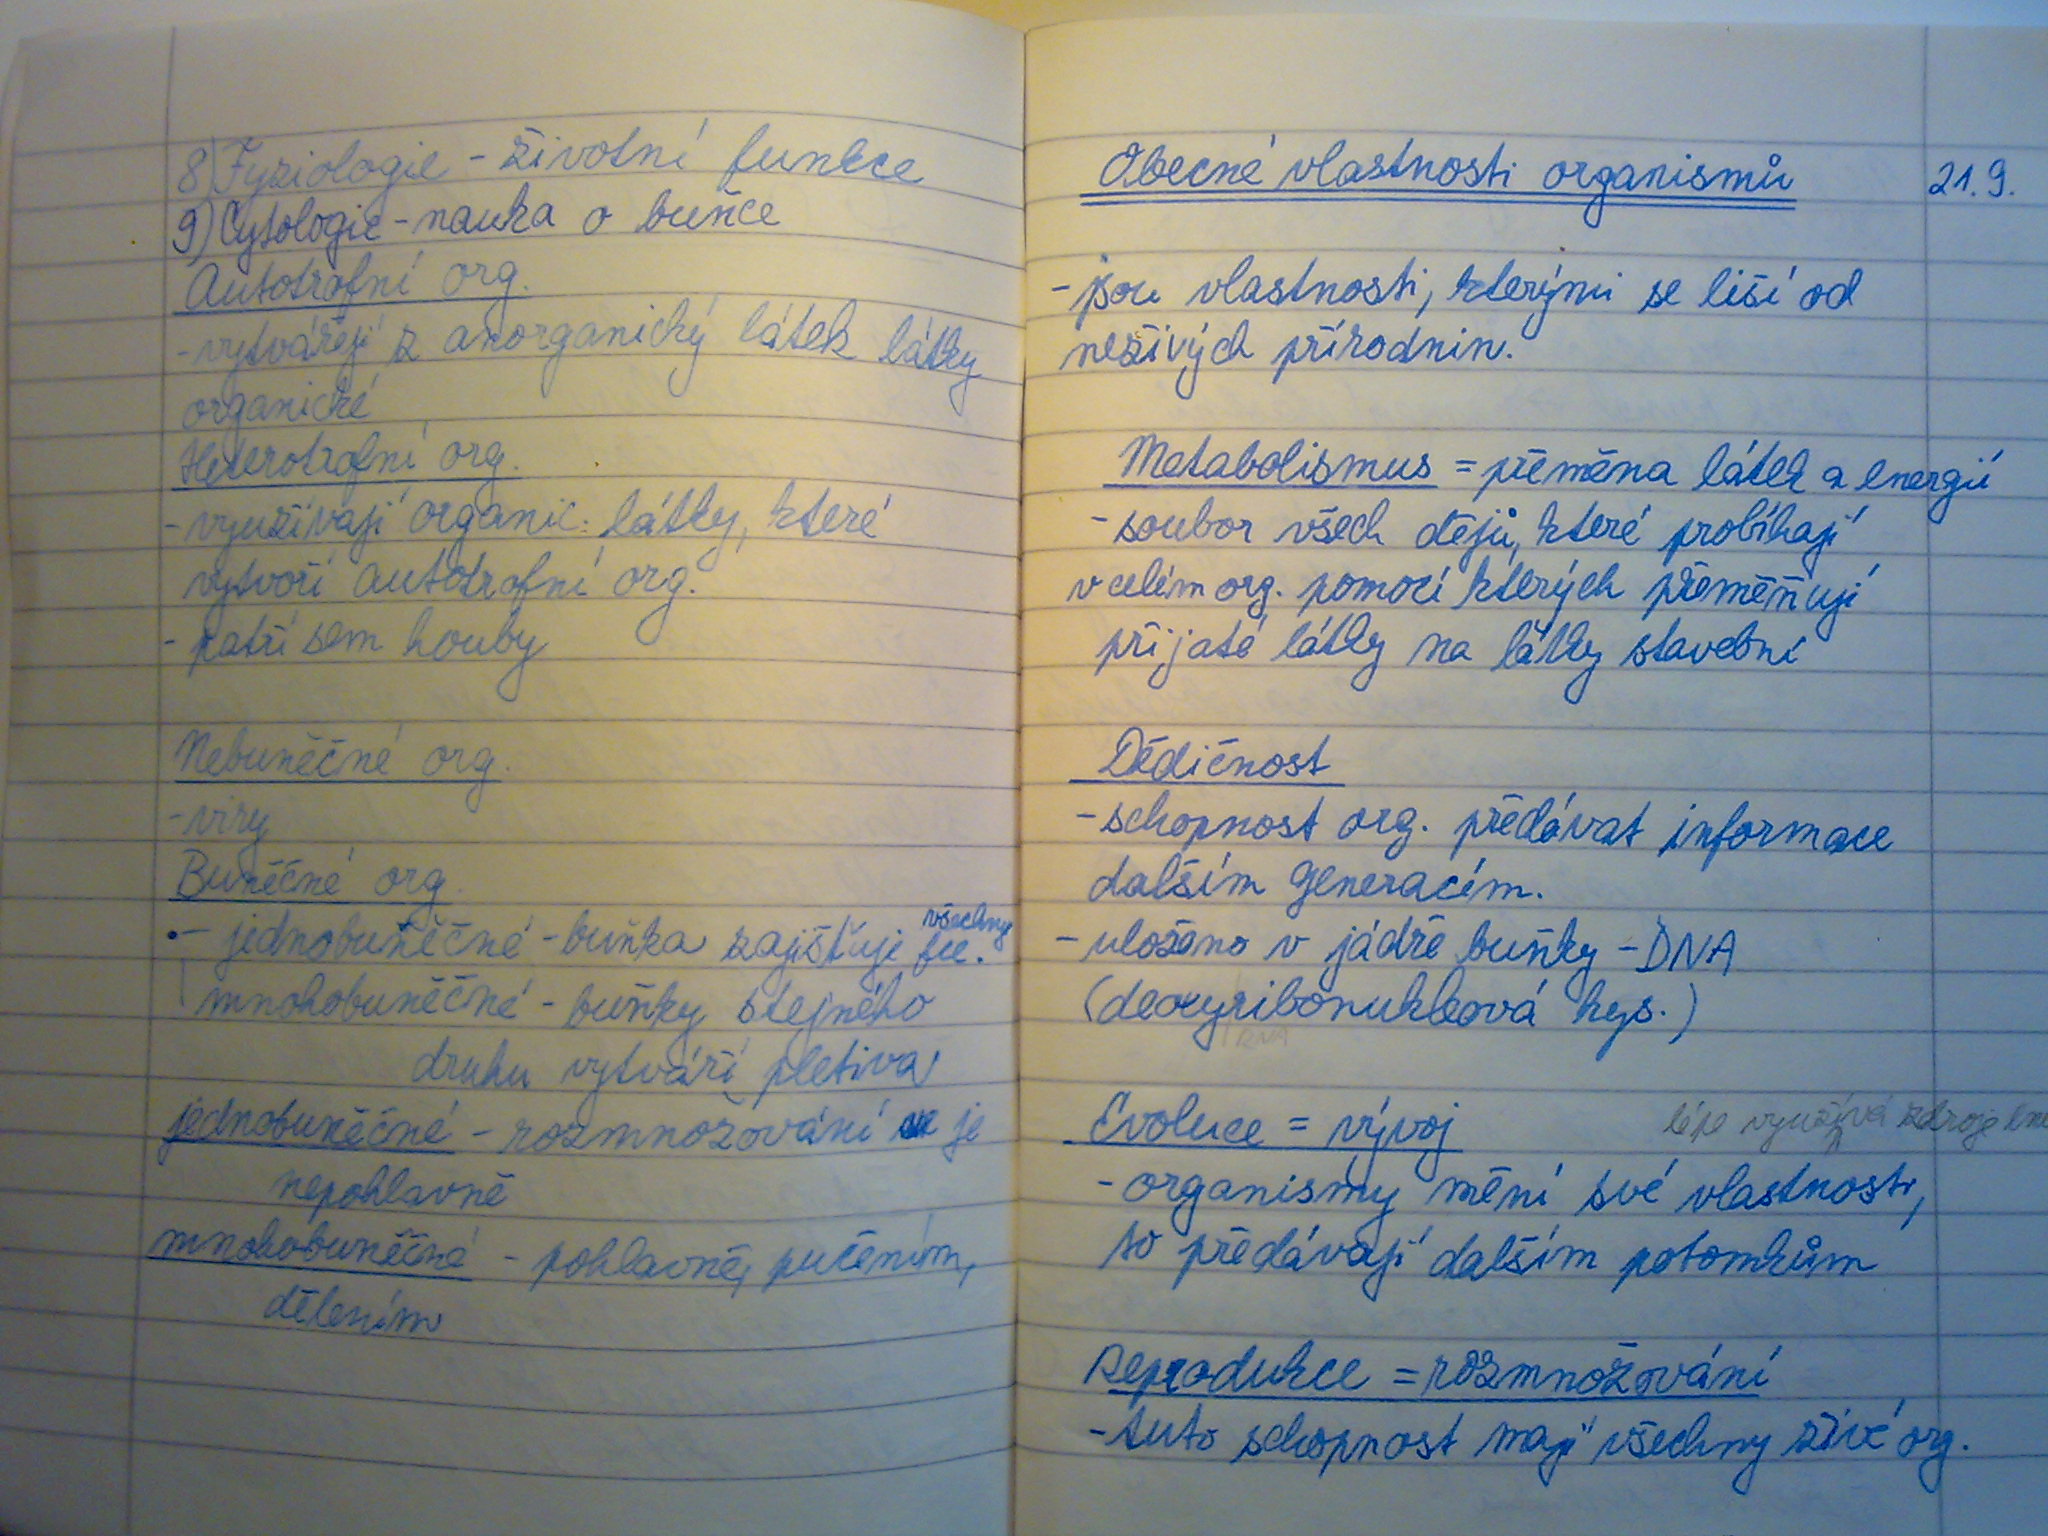 8) Fyziologie - životní funkce
9) Cytologie - nauka o buňce
Autotrofní org.
- vytvářejí z anorganický látek látky
organické
Heterotrofní org.
- využívají organic. látky, které
vytvoří autotrofní org.
- patří sem houby
Nebuněčné org.
- viry
Buněčné org.
- jednobuněčné - buňka zajišťuje všechny fce.
mnohobuněčné - buňky stejného
druhu vytváří pletiva
jednobuněčné - rozmnožování je
nepohlavně
mnohobuněčné - pohlavně, pučením,
dělením
Obecné vlastnosti organismů 21.9.
- jsou vlastnosti, kterými se liší od
neživých přírodnin.
Metabolismus = přeměna látek a energií
- soubor všech dějů, které probíhají
v celém org. pomocí kterých přeměňují
přijaté látky na látky stavební
Dědičnost
- schopnost org. předávat informace
dalším generacím.
- uloženo v jádře buňky - DNA
(deoxyribonukleová kys.)
RNA
Evoluce = vývoj
lépe využívá zdroje
- organismy mění své vlastnosti,
to předávají dalším potomkům
Reprodukce = rozmnožování
- tuto schopnost mají všechny živé org.